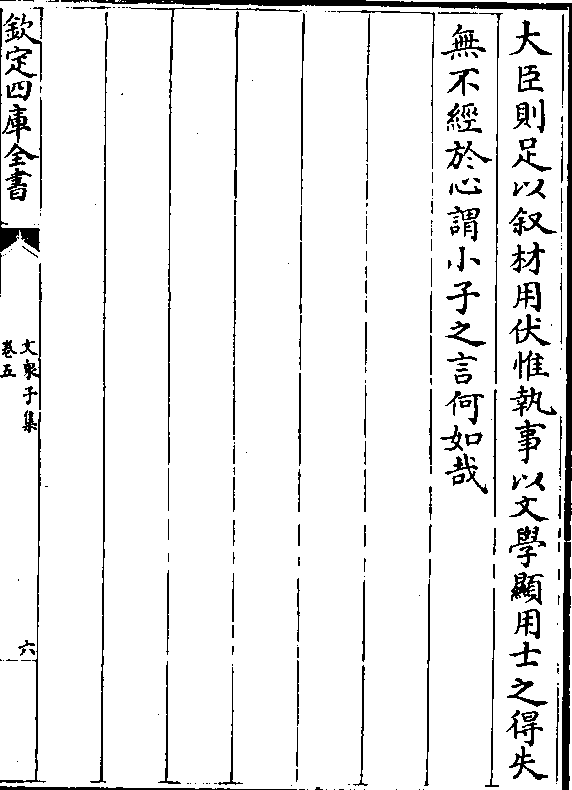 大臣則足以叙材用伏惟執事以文學顯用士之得失
無不經於心謂小子之言何如哉
欽定四庫全書
文泉子集
卷五
六